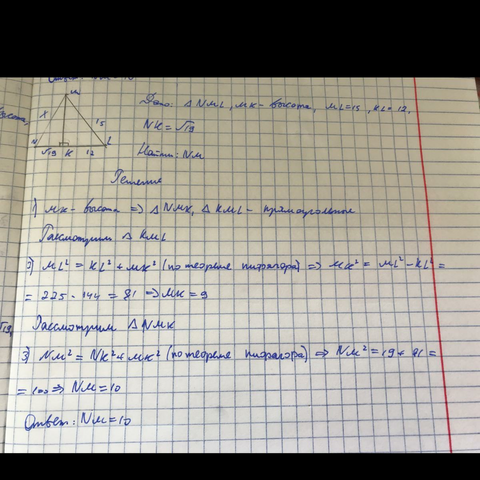 M
Дано: △ NML, MK - высота, ML=15, KL=12,
X
15
NK=√19
N
L
√19 K 12
Найти: NM
Решение
1) MK - высота ⇒ △NMK, △KML - прямоугольные
Рассмотрим △ KML
2) ML² = KL² + MK² (по теореме пифагора) ⇒ MK² = ML² - KL² =
= 225 - 144 = 81 ⇒ MK = 9
Рассмотрим △NMK
3) NM² = NK² + MK² (по теореме пифагора) ⇒ NM² = 19 + 81 =
= 100 ⇒ NM = 10
Ответ: NM = 10